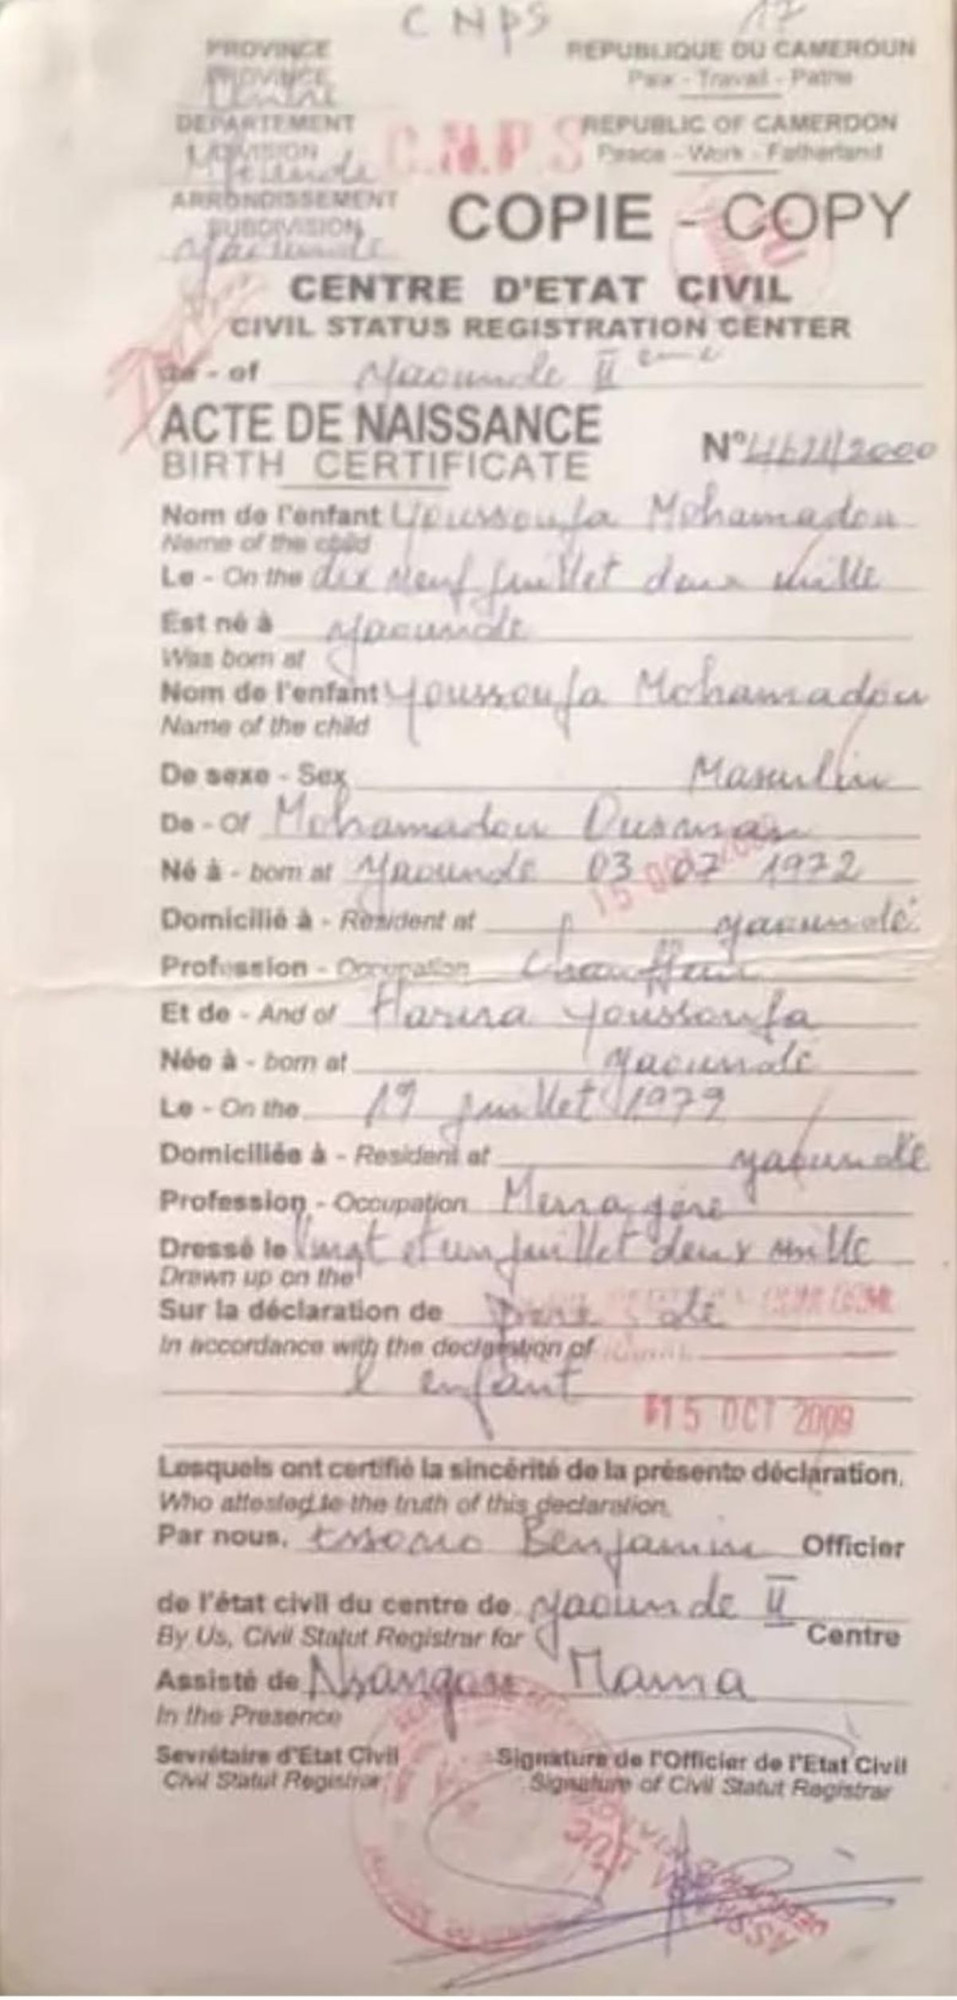 CNPS
17
PROVINCE
PROVINCE
Centre
REPUBLIQUE DU CAMEROUN
Paix - Travail - Patrie
DEPARTEMENT
DIVISION
C.N.P.S
REPUBLIC OF CAMERDON
Peace - Work - Fatherland
ARRONDISSEMENT
SUBDIVISION
Yaounde
COPIE - COPY
CENTRE D'ETAT CIVIL
CIVIL STATUS REGISTRATION CENTER
de - of Yaounde II eme
ACTE DE NAISSANCE
BIRTH CERTIFICATE
N° /2000
Nom de l'enfant Youssoufa Mohamadou
Name of the child
Le - On the dix neuf juillet deux mille
Est né à Yaounde
Was born at
Nom de l'enfant Youssoufa Mohamadou
Name of the child
De sexe - Sex Masculin
De - Of Mohamadou Ousman
Né à - born at Yaounde 03 07 1972
Domicilié à - Resident at Yaoundé
Profession - Occupation Chauffeur
Et de - And of Youssoufa
Née à - born at Yaoundé
Le - On the 19 juillet 1979
Domiciliée à - Resident at Yaoundé
Profession - Occupation Menagère
Dressé le Vingt et un juillet deux mille
Drawn up on the
Sur la déclaration de Père de
In accordance with the declaration of
l enfant
15 OCT 2009
Lesquels ont certifié la sincérité de la présente déclaration.
Who attested to the truth of this declaration.
Par nous, Benjamin Officier
de l'état civil du centre de Yaounde II
By Us, Civil Statut Registrar for Centre
Assisté de Mama
In the Presence
Sevrétaire d'Etat Civil
Civil Statut Registrar
Signature de l'Officier de l'Etat Civil
Signature of Civil Statut Registrar